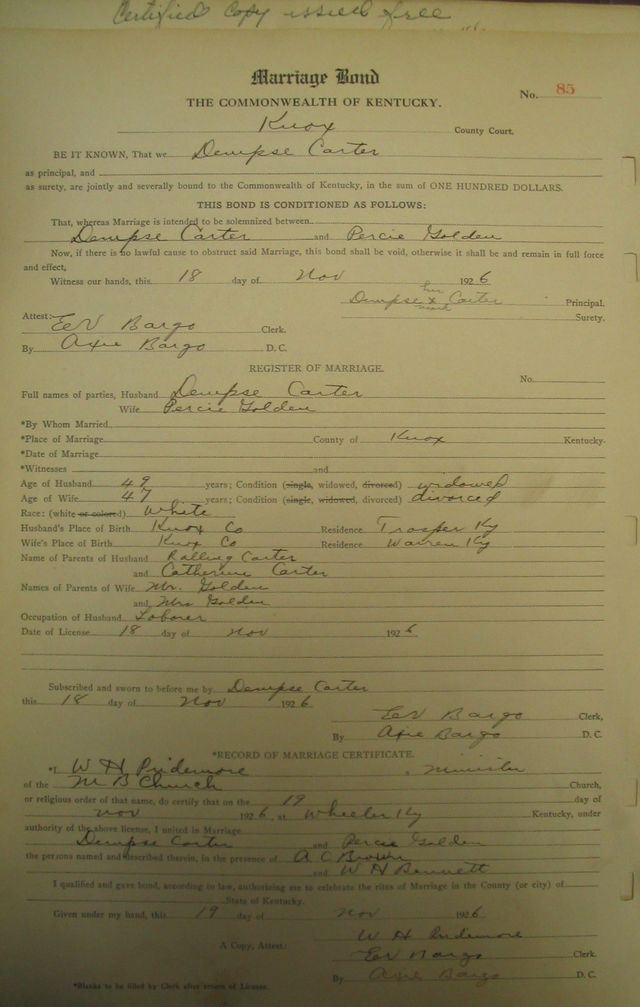 Certified Copy issued free
Marriage Bond
No. 85
THE COMMONWEALTH OF KENTUCKY.
Knox County Court.
BE IT KNOWN, That we Dempse Carter
as principal, and
as surety, are jointly and severally bound to the Commonwealth of Kentucky, in the sum of ONE HUNDRED DOLLARS.
THIS BOND IS CONDITIONED AS FOLLOWS:
That, whereas Marriage is intended to be solemnized between
Dempse Carter and Percie Golden
Now, if there is no lawful cause to obstruct said Marriage, this bond shall be void, otherwise it shall be and remain in full force
and effect,
Witness our hands, this 18 day of Nov 1926
his
Dempse x Carter Principal.
mark
Surety.
Attest: Ee V Bargo Clerk.
By Axie Bargo D. C.
REGISTER OF MARRIAGE.
No.
Full names of parties, Husband Dempse Carter
Wife Percie Golden
*By Whom Married
*Place of Marriage County of Knox Kentucky.
*Date of Marriage
*Witnesses and
Age of Husband 49 years; Condition (single, widowed, divorced) widowed
Age of Wife 47 years; Condition (single, widowed, divorced) divorced
Race: (white or colored) White
Husband's Place of Birth Knox Co Residence Trosper Ky
Wife's Place of Birth Knox Co Residence Warren Ky
Name of Parents of Husband Ralling Carter
and Catherine Carter
Names of Parents of Wife Mr. Golden
and Mrs Golden
Occupation of Husband Laborer
Date of License 18 day of Nov 1926
Subscribed and sworn to before me by Dempse Carter
this 18 day of Nov 1926
Ee V Bargo Clerk,
By Axie Bargo D. C.
*RECORD OF MARRIAGE CERTIFICATE.
*I W H Pridemore, Minister
of the M B Church Church,
or religious order of that name, do certify that on the 19 day of
Nov 1926, at Wheeler Ky Kentucky, under
authority of the above license, I united in Marriage
Dempse Carter and Percie Golden
the persons named and described therein, in the presence of A C Brown
and W H Bennett
I qualified and gave bond, according to law, authorizing me to celebrate the rites of Marriage in the County (or city) of
State of Kentucky.
Given under my hand, this 19 day of Nov 1926
W H Pridemore
A Copy, Attest: Ee V Bargo Clerk.
By Axie Bargo D. C.
*Blanks to be filled by Clerk after return of License.